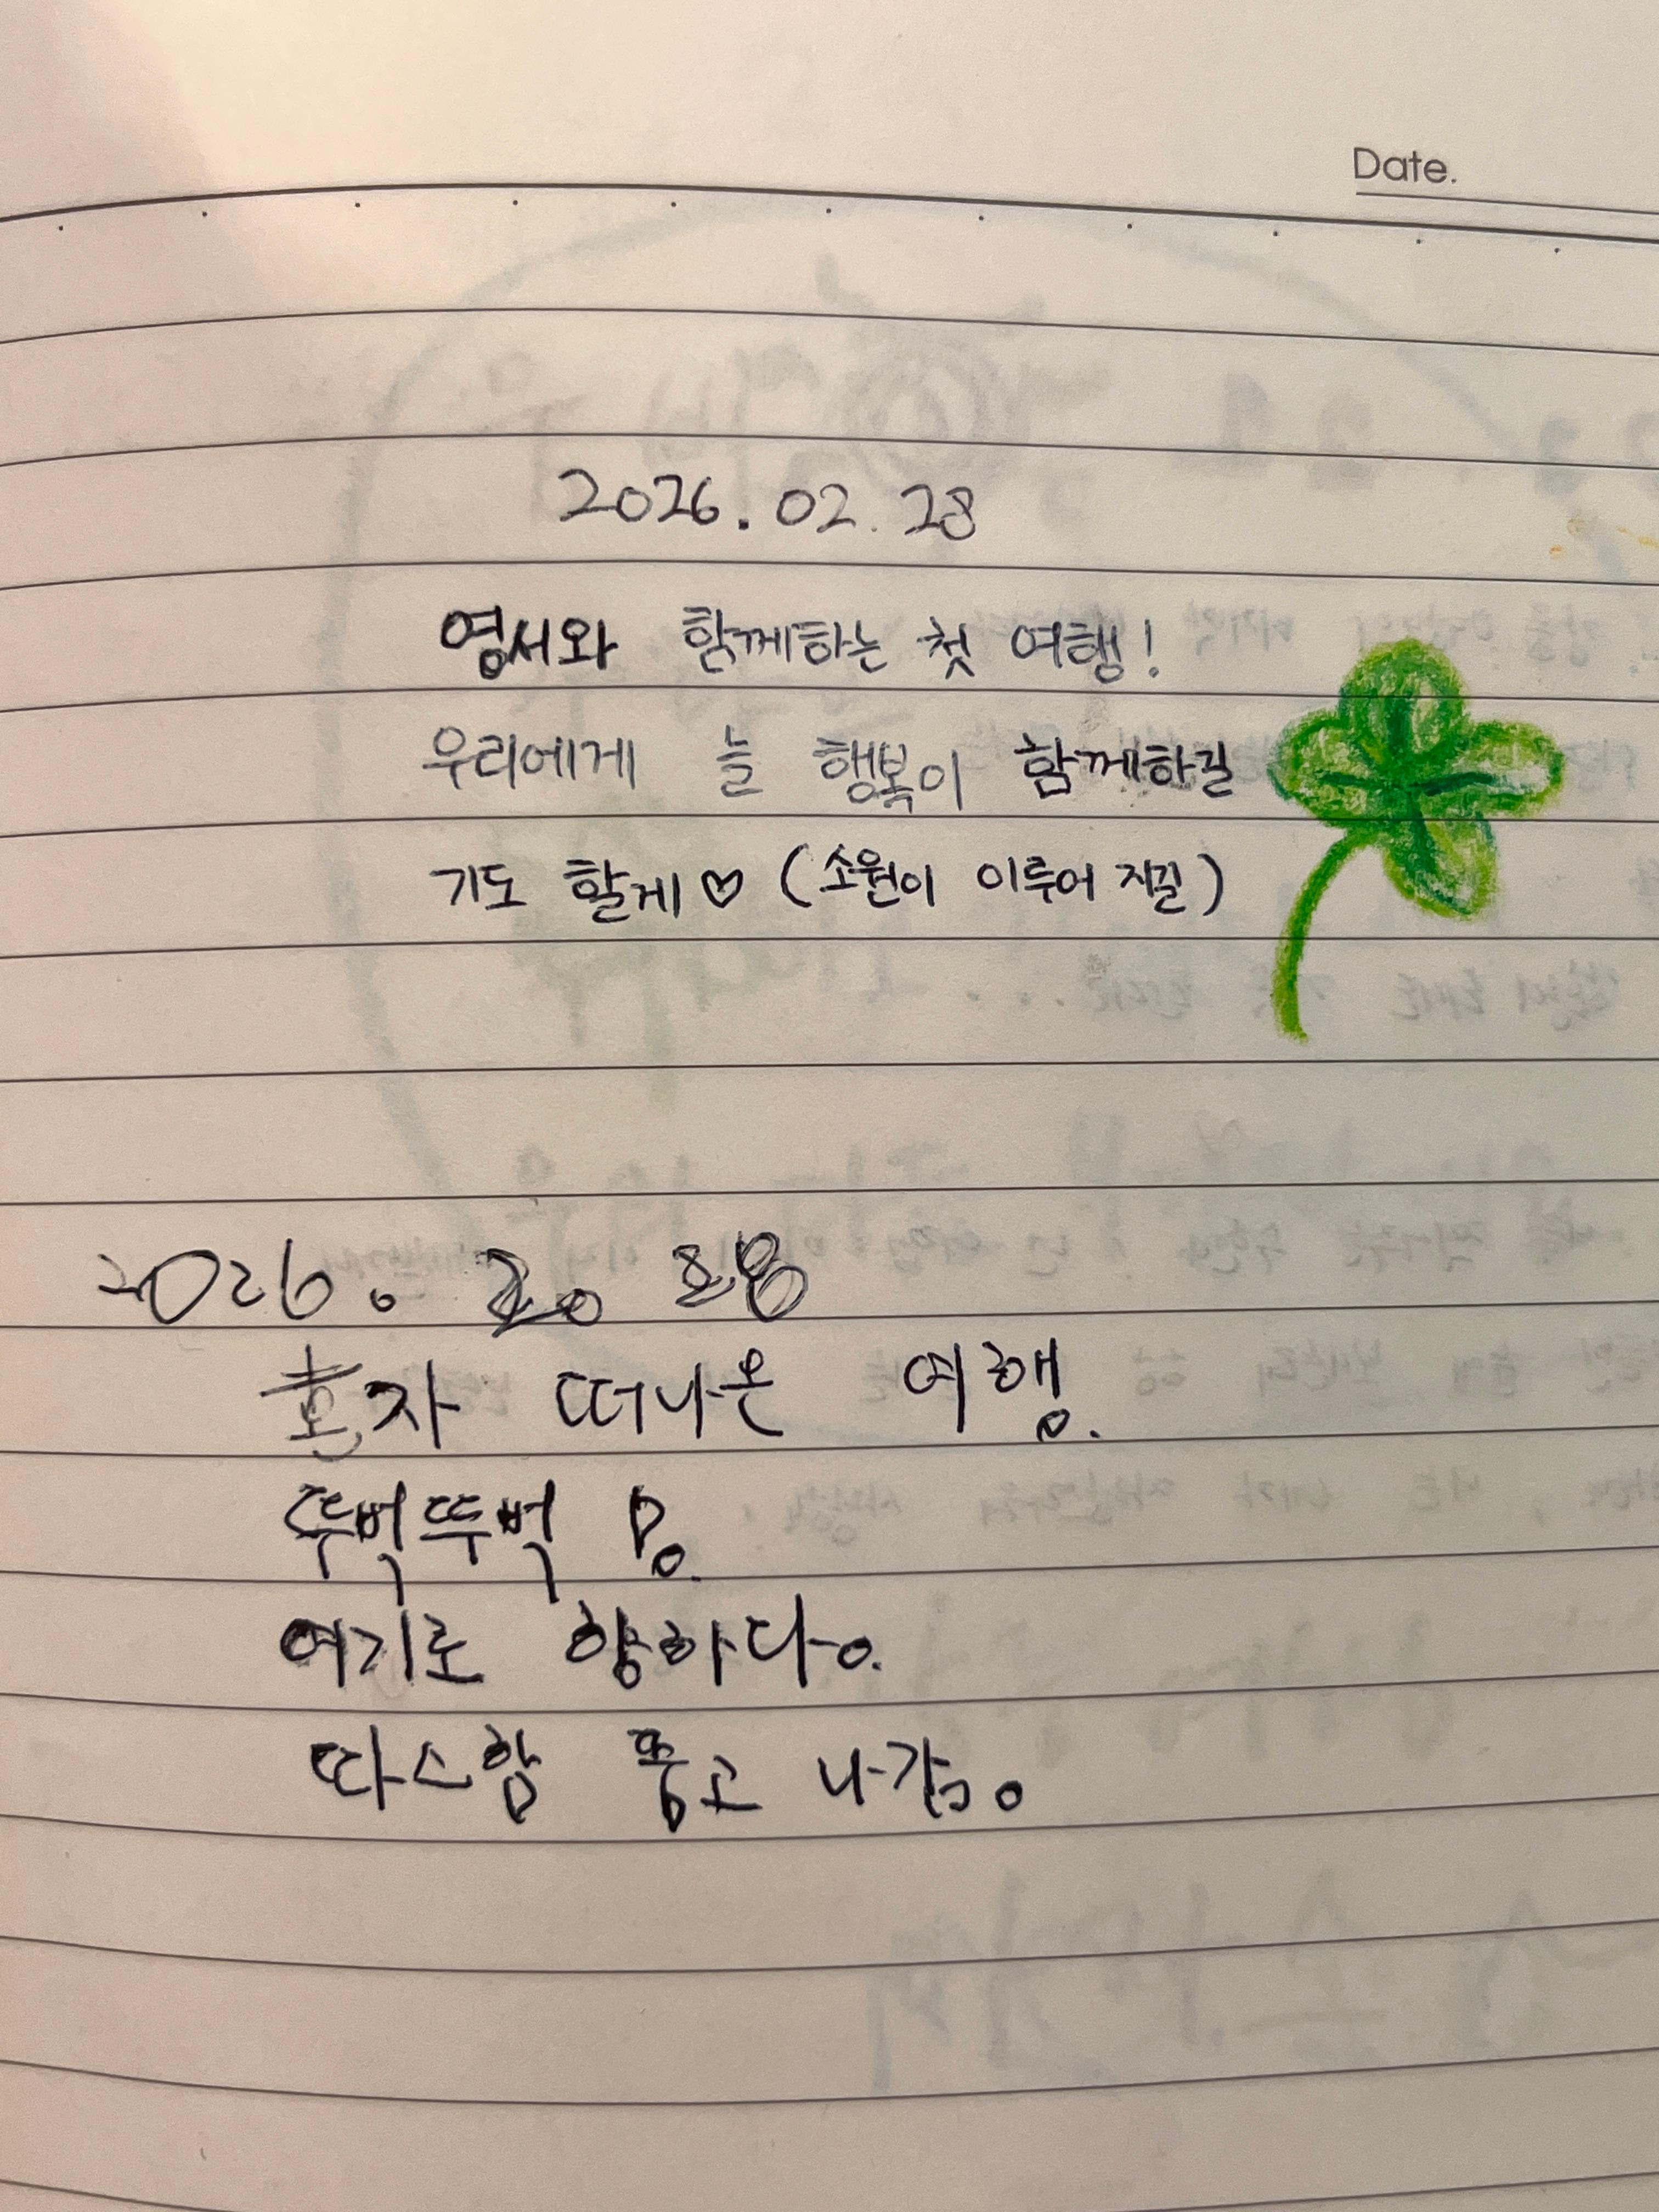 Date.
2026.02.28
영서와 함께하는 첫 여행!
우리에게 늘 행복이 함께하길
기도 할게♡ (소원이 이루어 지길)
2026.
혼자 떠나온 여행.
뚜벅뚜벅
여기로 향하다.
따스함 품고 나감.